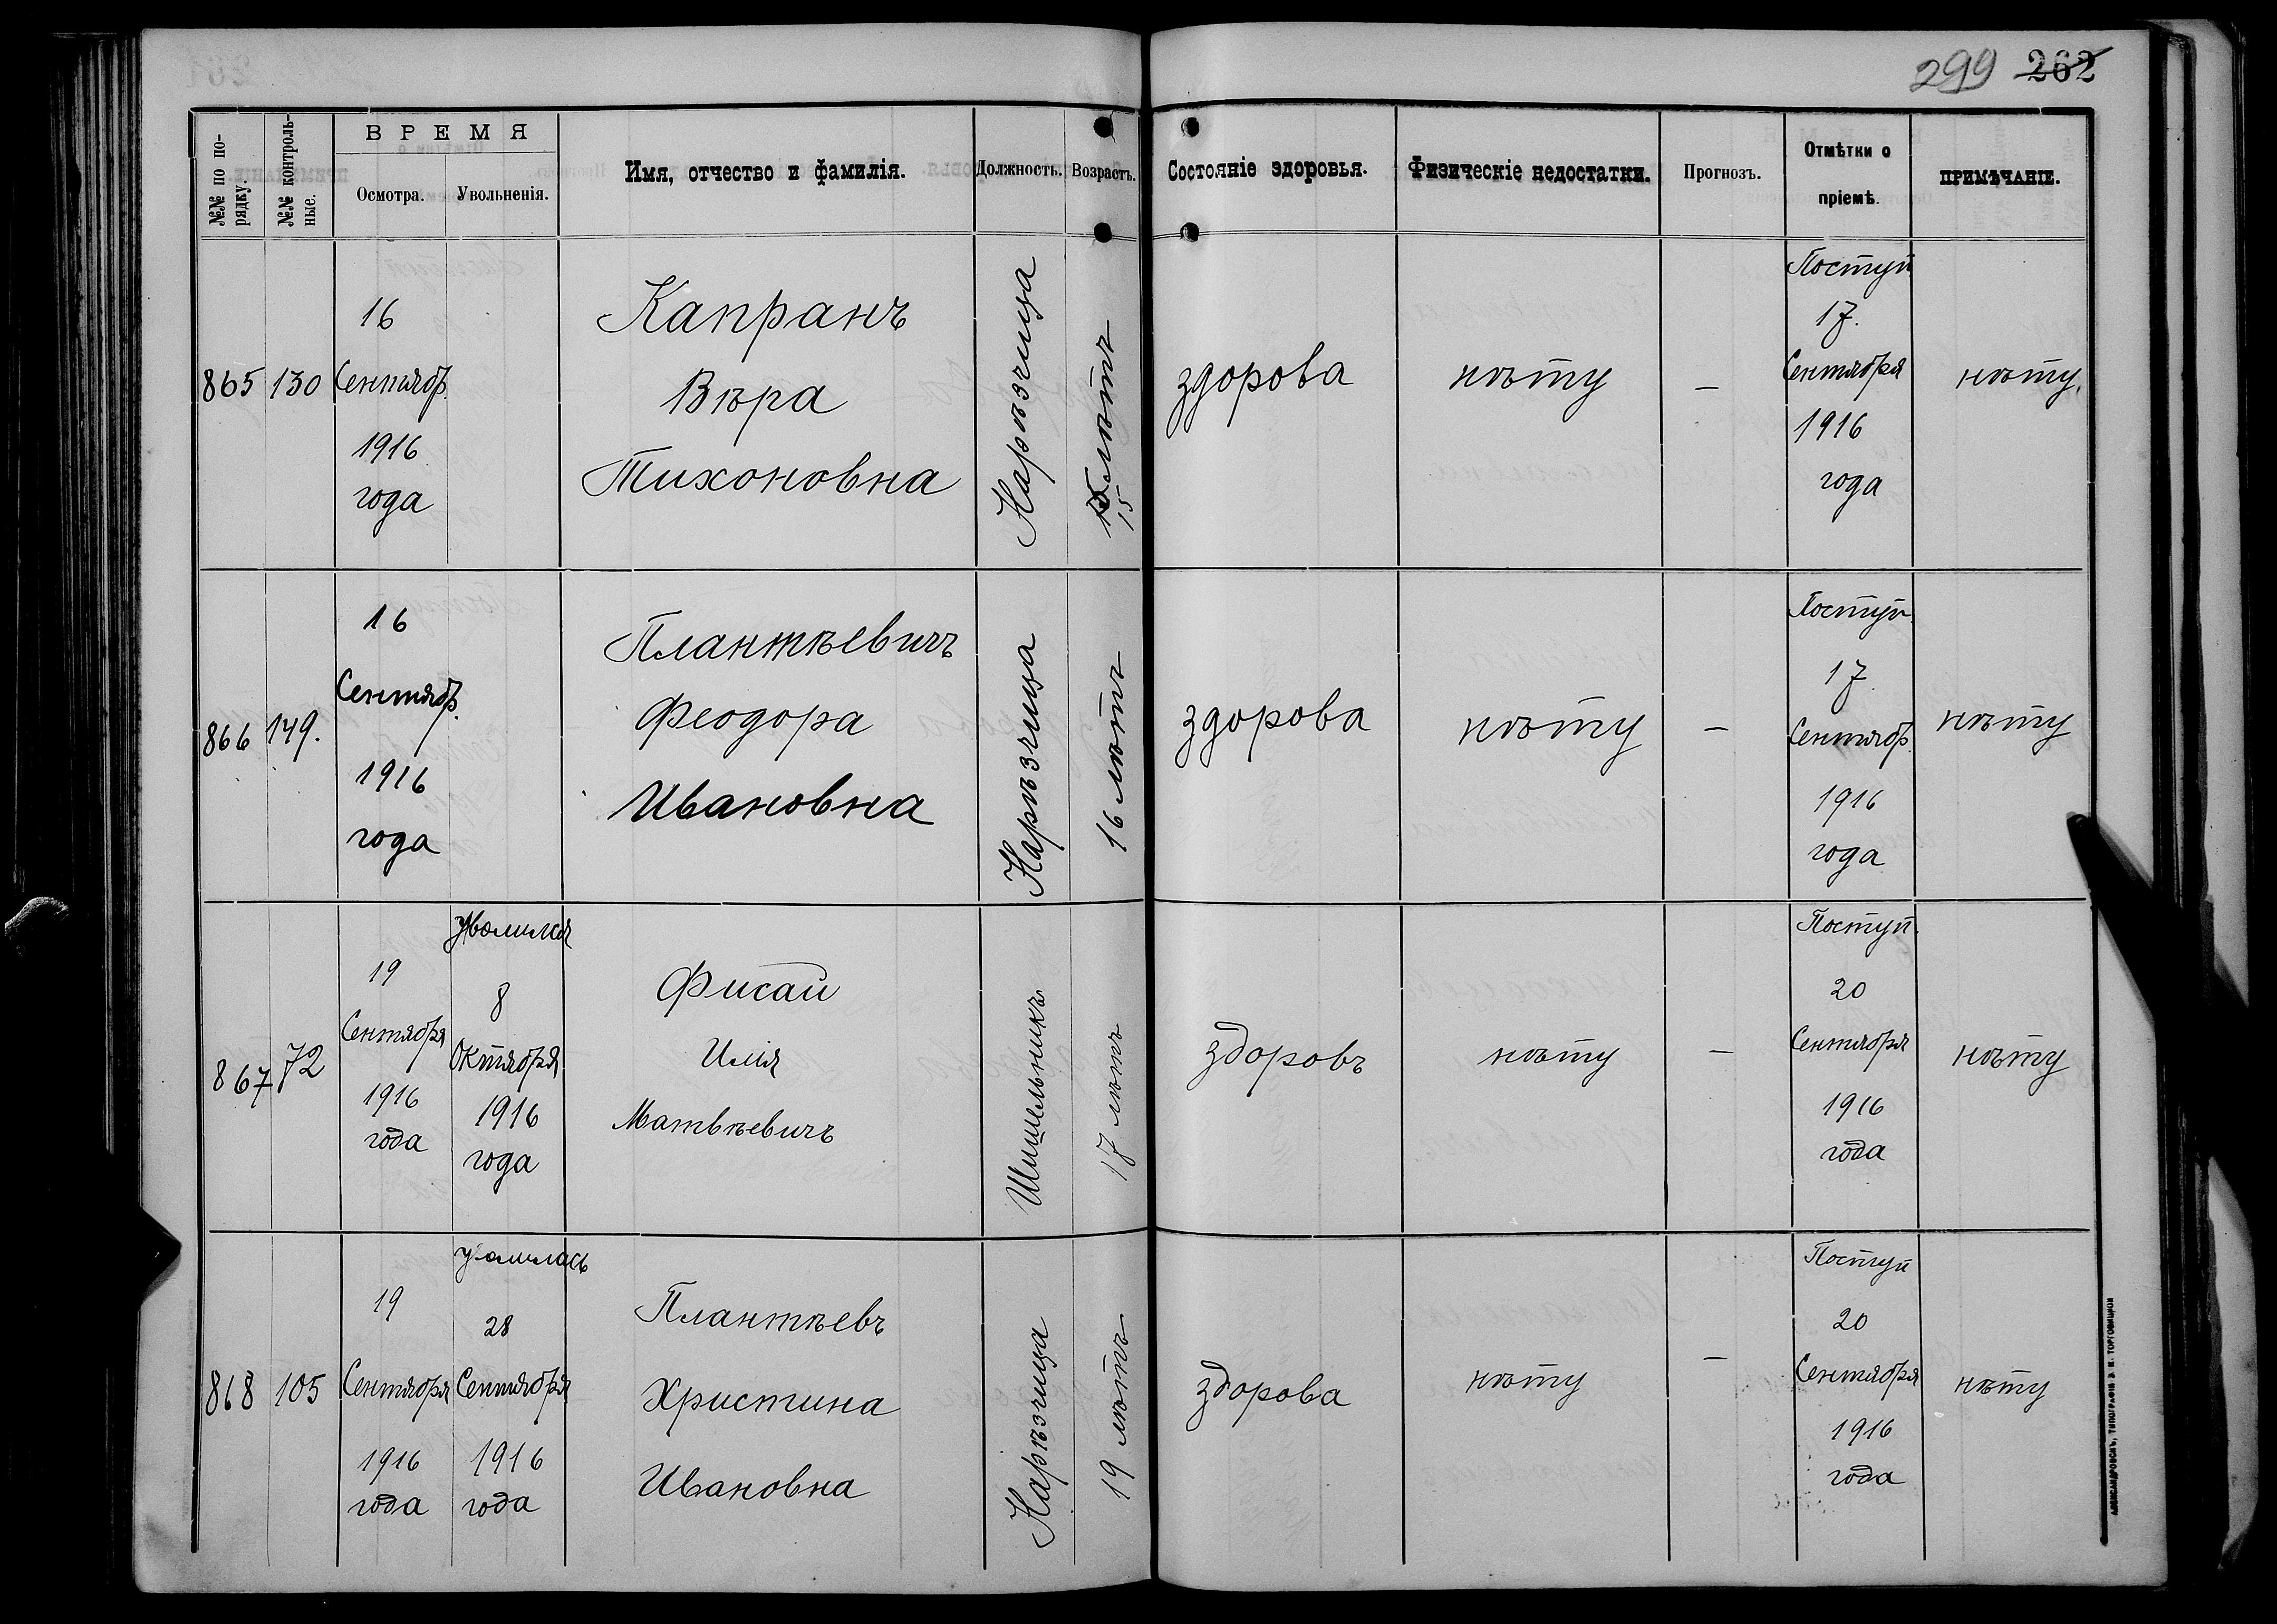 299 262
№№ по по-
рядку.
№№ контроль-
ные.
ВРЕМЯ
Осмотра.
Увольненія.
Имя, отчество и фамилія.
Должность.
Возрастъ.
Состояніе здоровья.
Физическіе недостатки.
Прогнозъ.
Отмѣтки о
пріемѣ.
ПРИМѢЧАНІЕ.
865
130
16
Сентябр.
1916
года
Капранъ
Вѣра
Тихоновна
Нарѣзчица
лѣтъ
15
здорова
нѣту
—
Поступ
17.
Сентября
1916
года
нѣту.
866
149.
16
Сентябр.
1916
года
Плантѣевичъ
Феодора
Ивановна
Нарѣзчица
16 лѣтъ
здорова
нѣту
—
Поступ.
17
Сентябр.
1916
года
нѣту
867
72
19
Сентября
1916
года
8
Октября
1916
года
Фисай
Илія
Матвѣевичъ
Шишельникъ
17 лѣтъ
здоровъ
нѣту
—
Поступ.
20
Сентября
1916
года
нѣту
868
105
19
Сентября
1916
года
28
Сентября
1916
года
Плантѣевъ
Христина
Ивановна
Нарѣзчица
19 лѣтъ
здорова
нѣту
—
Поступ
20
Сентября
1916
года
нѣту